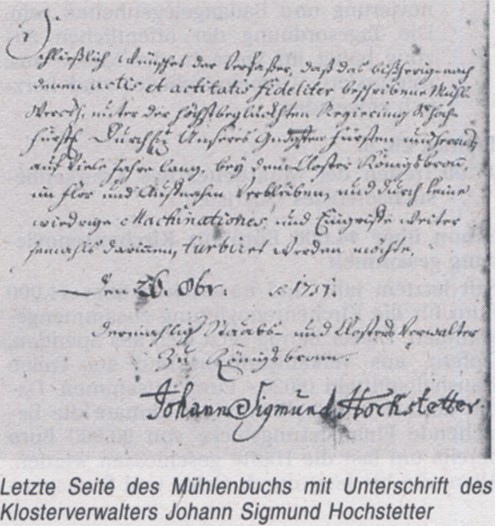 Schließlich wünschet der Verfaßer, daß das bißherige nach
denen actis et actitatis fideliter beschribene Mühl
Werck, unter der höchstbeglückten Regierung Sr Hoch-
fürstl. Durchl. Unsers Gndgsten Fürsten und Herrns
auf viele Jahre lang, bey dem Closter Königsbronn,
in flor und Aufnahm verbleiben, und durch keine
wiedrige Machinationes, und Eingriffe weiter
jemahls darinn, turbiret werden möchte.
Den 26. Obr. 1757.
dermahlig Staabs und Closters Verwalter
Zu Königsbronn.
Johann Sigmund Hochstetter
Letzte Seite des Mühlenbuchs mit Unterschrift des
Klosterverwalters Johann Sigmund Hochstetter